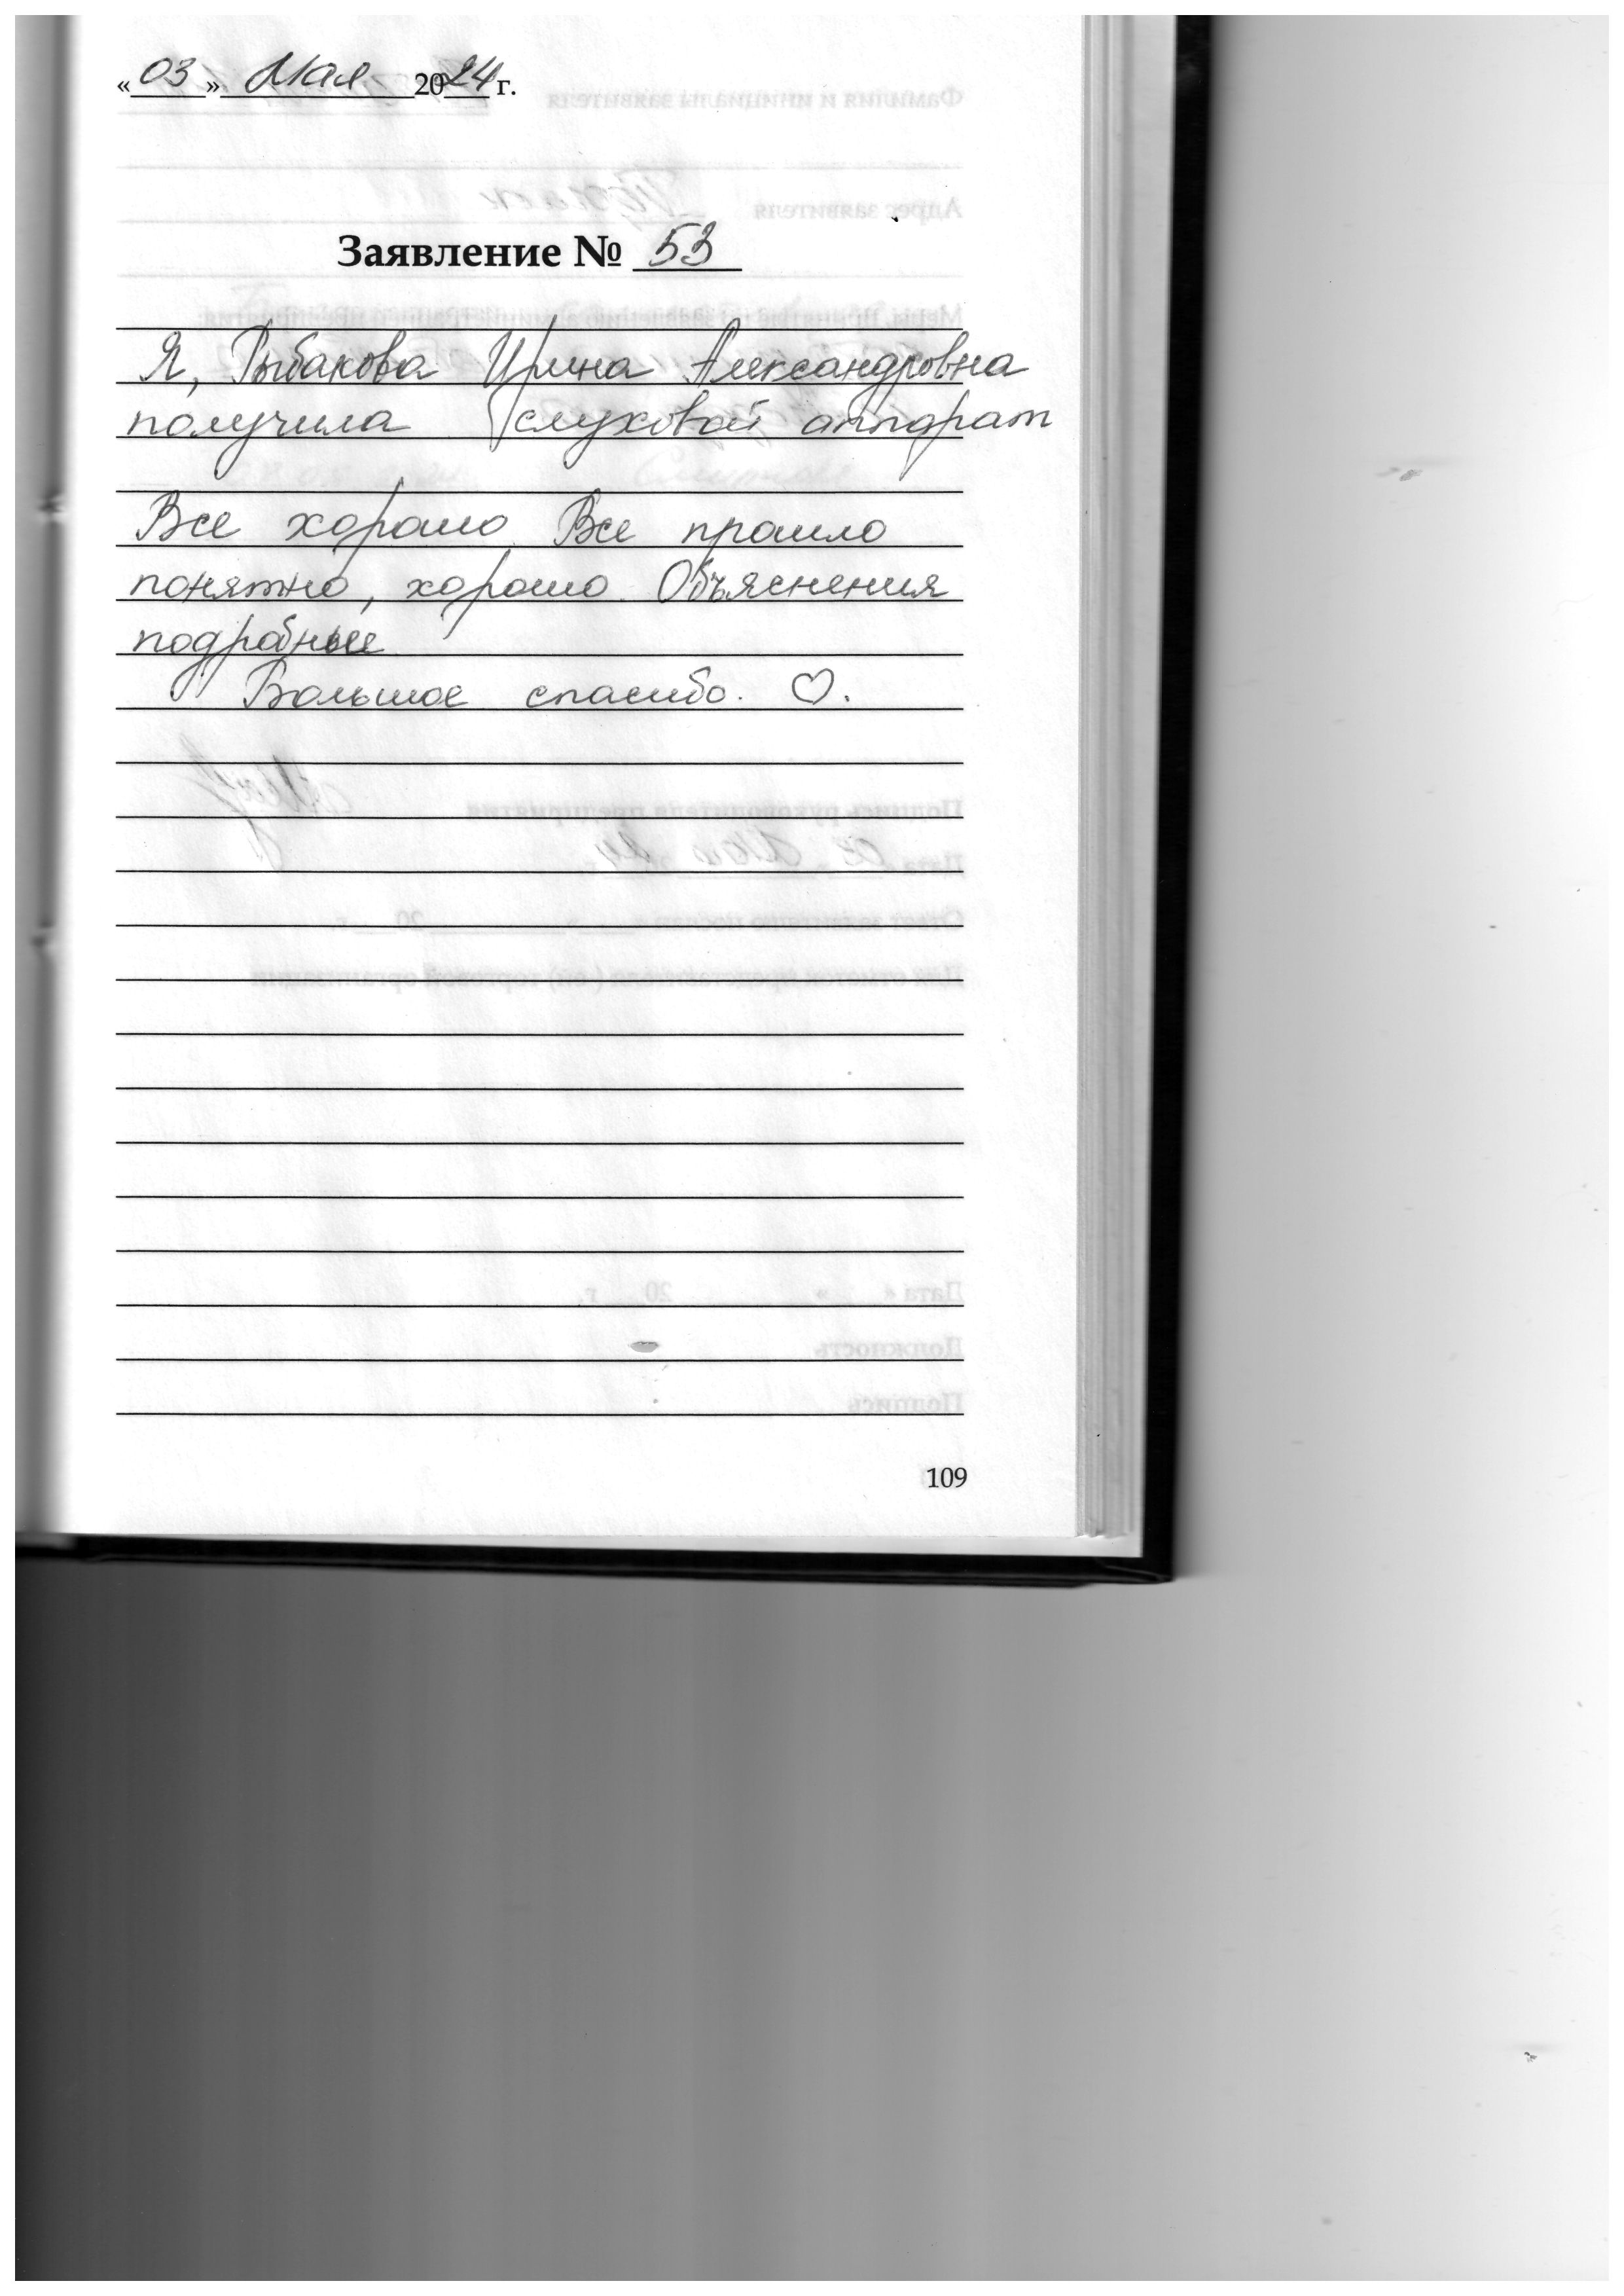 «03» Мая 2024 г.
Заявление № 53
Я, Рыбакова Ирина Александровна
получила слуховой аппарат
Все хорошо. Все прошло
понятно, хорошо. Объяснения
подробные
Большое спасибо. ♡.
109